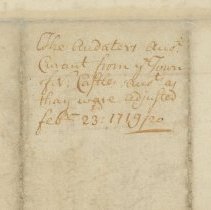 The Audaters Acot
Curant from ye Town
of N: Castle acot as
thay ware adjusted
febry 23: 1719/20